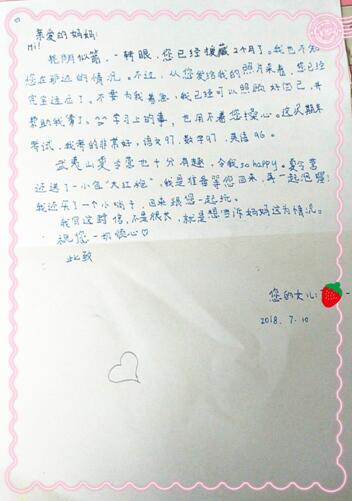 亲爱的妈妈:
Hi!
光阴似箭,一转眼,您已经援藏2个月了。我也不知
您在那边的情况。不过,从您发给我的照片来看,您已经
完全适应了。不要为我着急,我已经可以照顾好自己,并
帮助我爹了。学习上的事,也用不着您操心。这次期末
考试,我考的非常好,语文97,数学97,英语96。
武夷山夏令营也十分有趣,令我so happy。夏令营
还送了一小包“大红袍”,我是准备等您回来,再一起泡喔!
我还买了一个小哨子,回来跟您一起玩。
我写这封信,不是很长,就是想告诉妈妈这方情况。
祝您一切顺心♡
此致
您的大儿:
2018.7.10